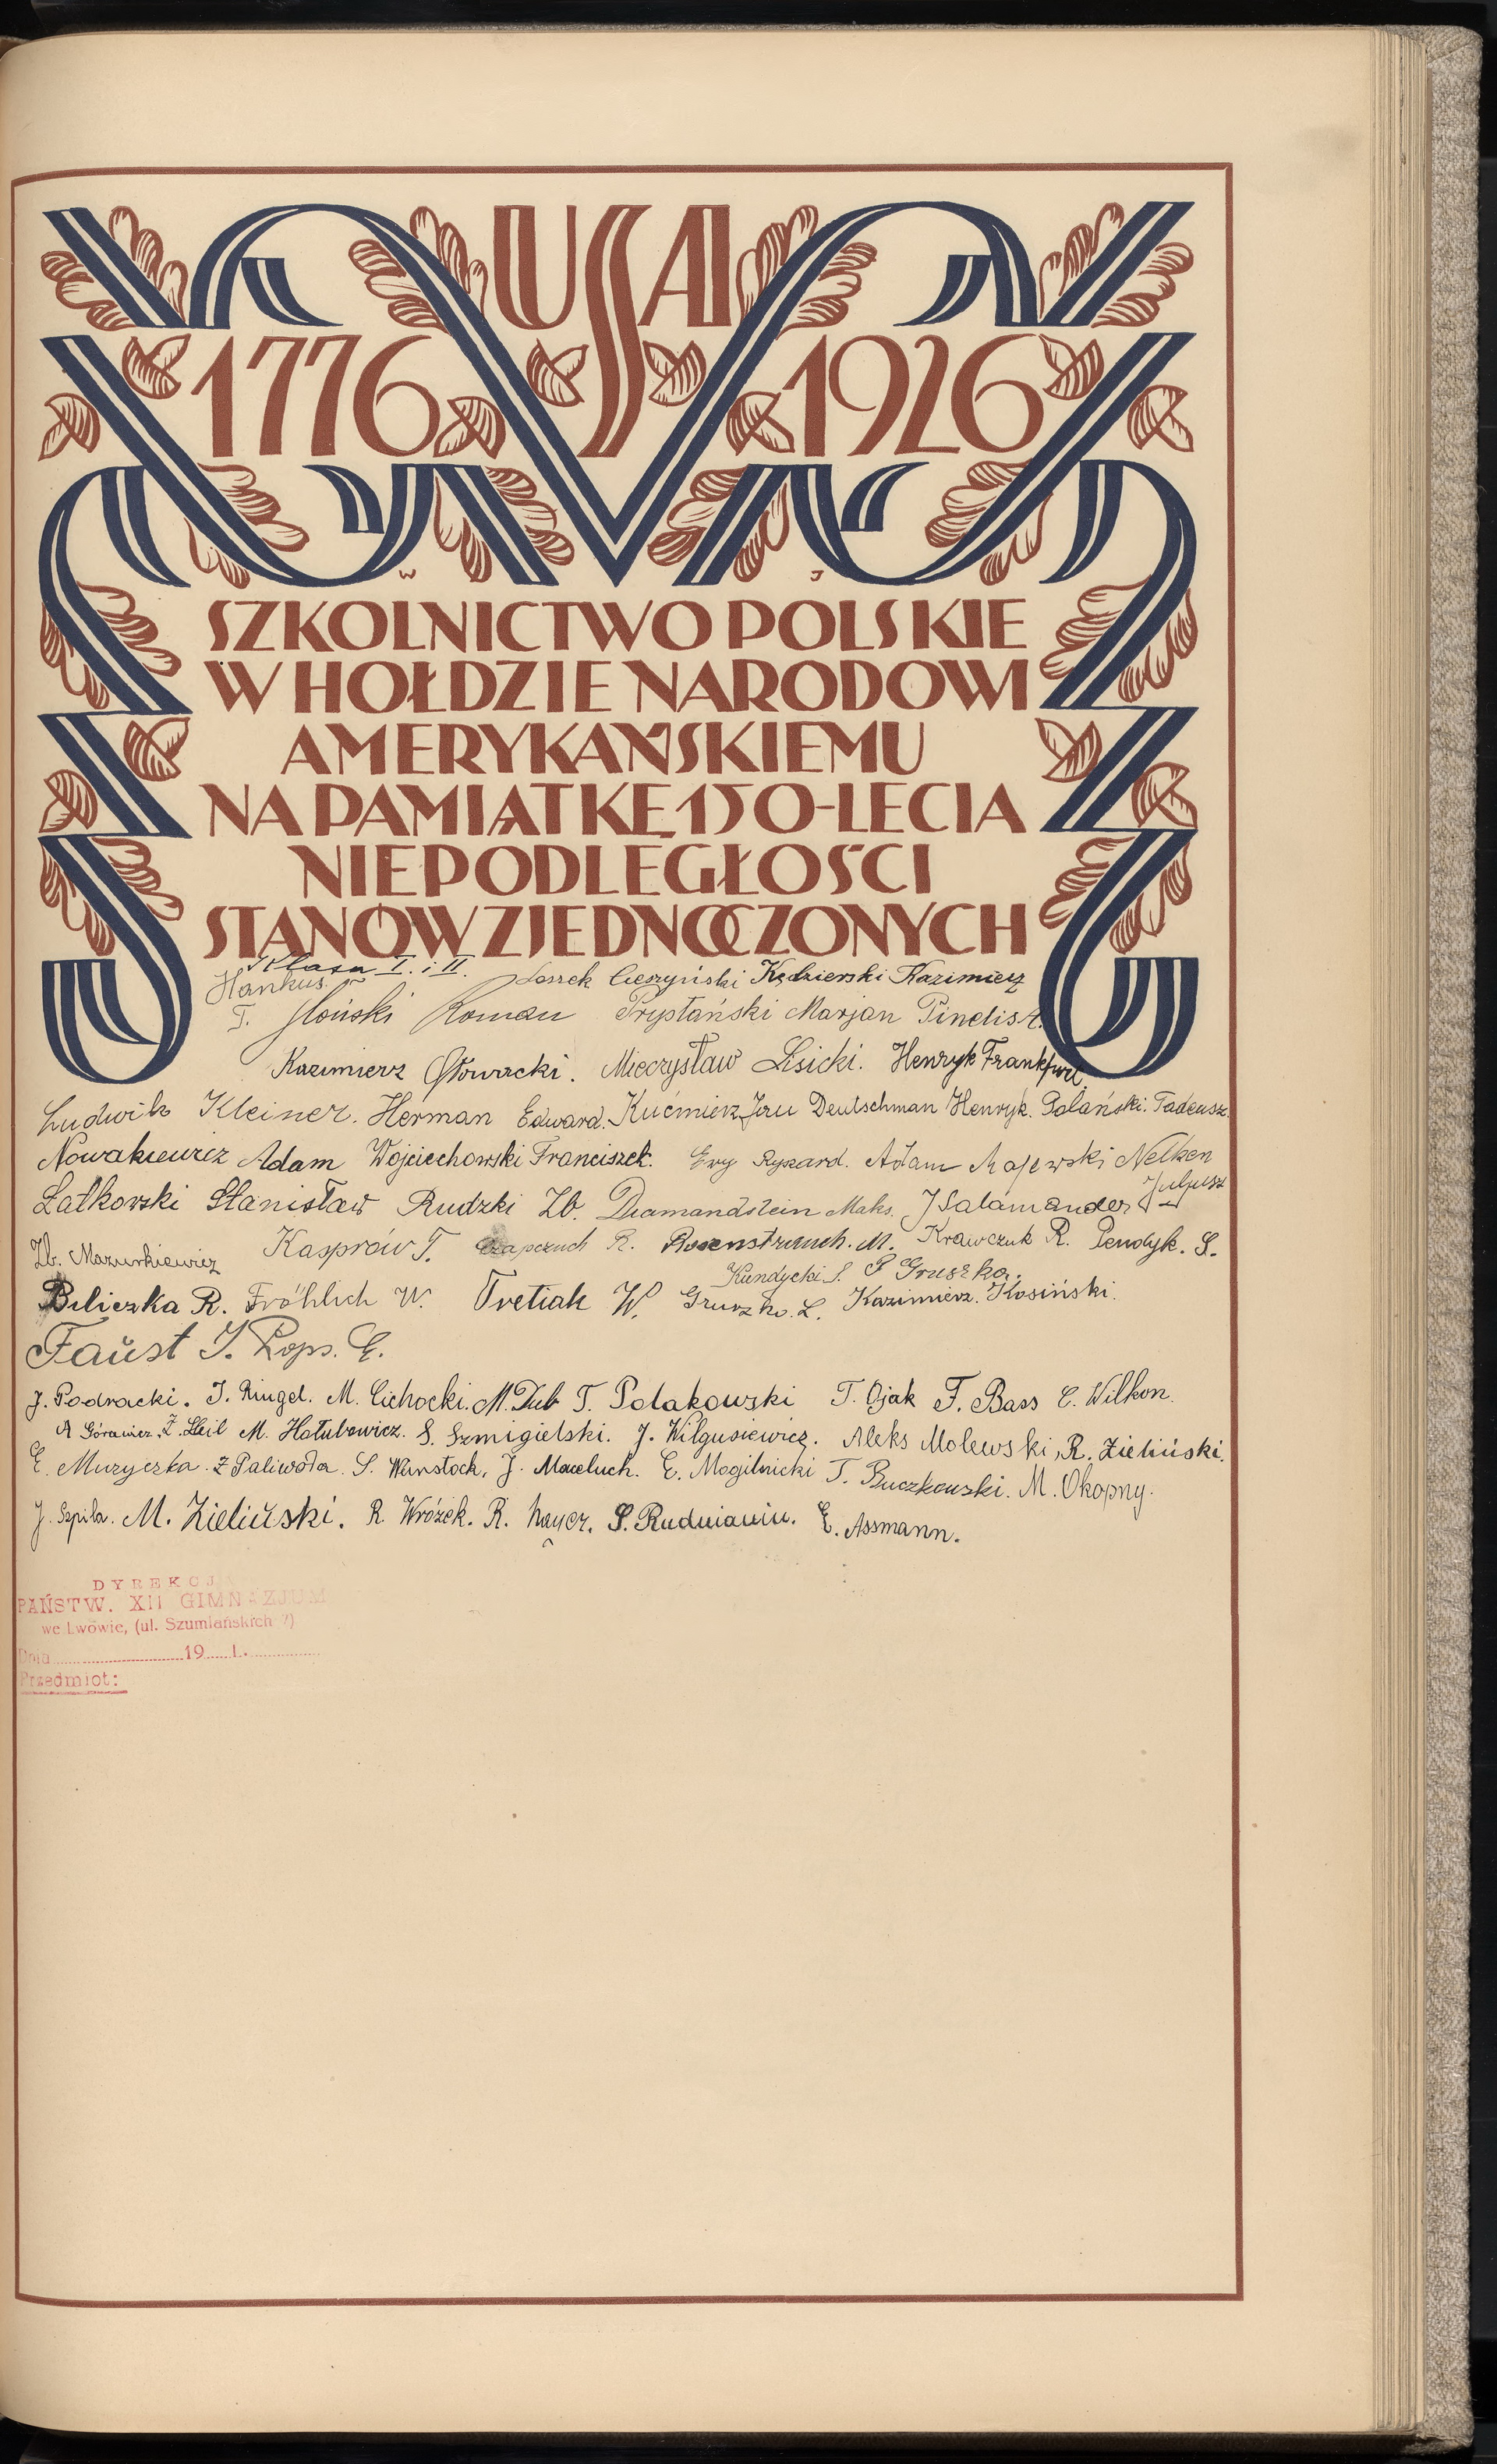 USA
1776 1926
W J
SZKOLNICTWO POLSKIE
W HOŁDZIE NARODOWI
AMERYKAŃSKIEMU
NA PAMIĄTKĘ 150-LECIA
NIEPODLEGŁOŚCI
STANÓW ZJEDNOCZONYCH
Klasa I. i II.
Hankus T. Leszek Cieszyński Kędzierski Kazimierz
Słoński Roman Prystański Marjan Pindis A.
Kazimierz Głowacki. Mieczysław Lisicki. Henryk Frankfurt
Ludwik Kleiner. Herman Edward. Kućmierz Jan Deutschman Henryk. Polański. Tadeusz
Nowakiewicz Adam Wojciechowski Franciszek. Ryszard. Adam Majewski Nelken Juljusz
Latkowski Stanisław Rudzki Zb. Diamandstein Maks. J Salamander
Zb. Mazurkiewicz Kasprów T. Czapczuch R. Rosenstrauch. M. Krawczuk R. Pendyk. S.
Kundycki S. P Gruszka.
Biliczka R. Fröhlich W. Tretiak W. Gruszka. L. Kazimierz. Kosiński.
Faust J. Rops. E.
J. Podracki. J. Ringel. M. Cichocki. M. Dub T. Polakowski T. Ojak F. Bass C. Wilkon.
A Górawicz. M. Hołubowicz. S. Szmigielski. J. Wilgusiewicz. Aleks Molewski, R. Zieliński.
E. Muzyczka. Z Paliwoda. S. Weinstock, J. Maceluch. E. Mogilnicki T. Buczkowski. M. Okopny.
J. Szpila. M. Zieliński. R. Wróżek. R. Nayer. S. Rudnianin. E. Assmann.
DYREKCJA
PAŃSTW. XII GIMNAZJUM
we Lwówie, (ul. Szumlańskich 7)
Dnia 19 L.
Przedmiot: